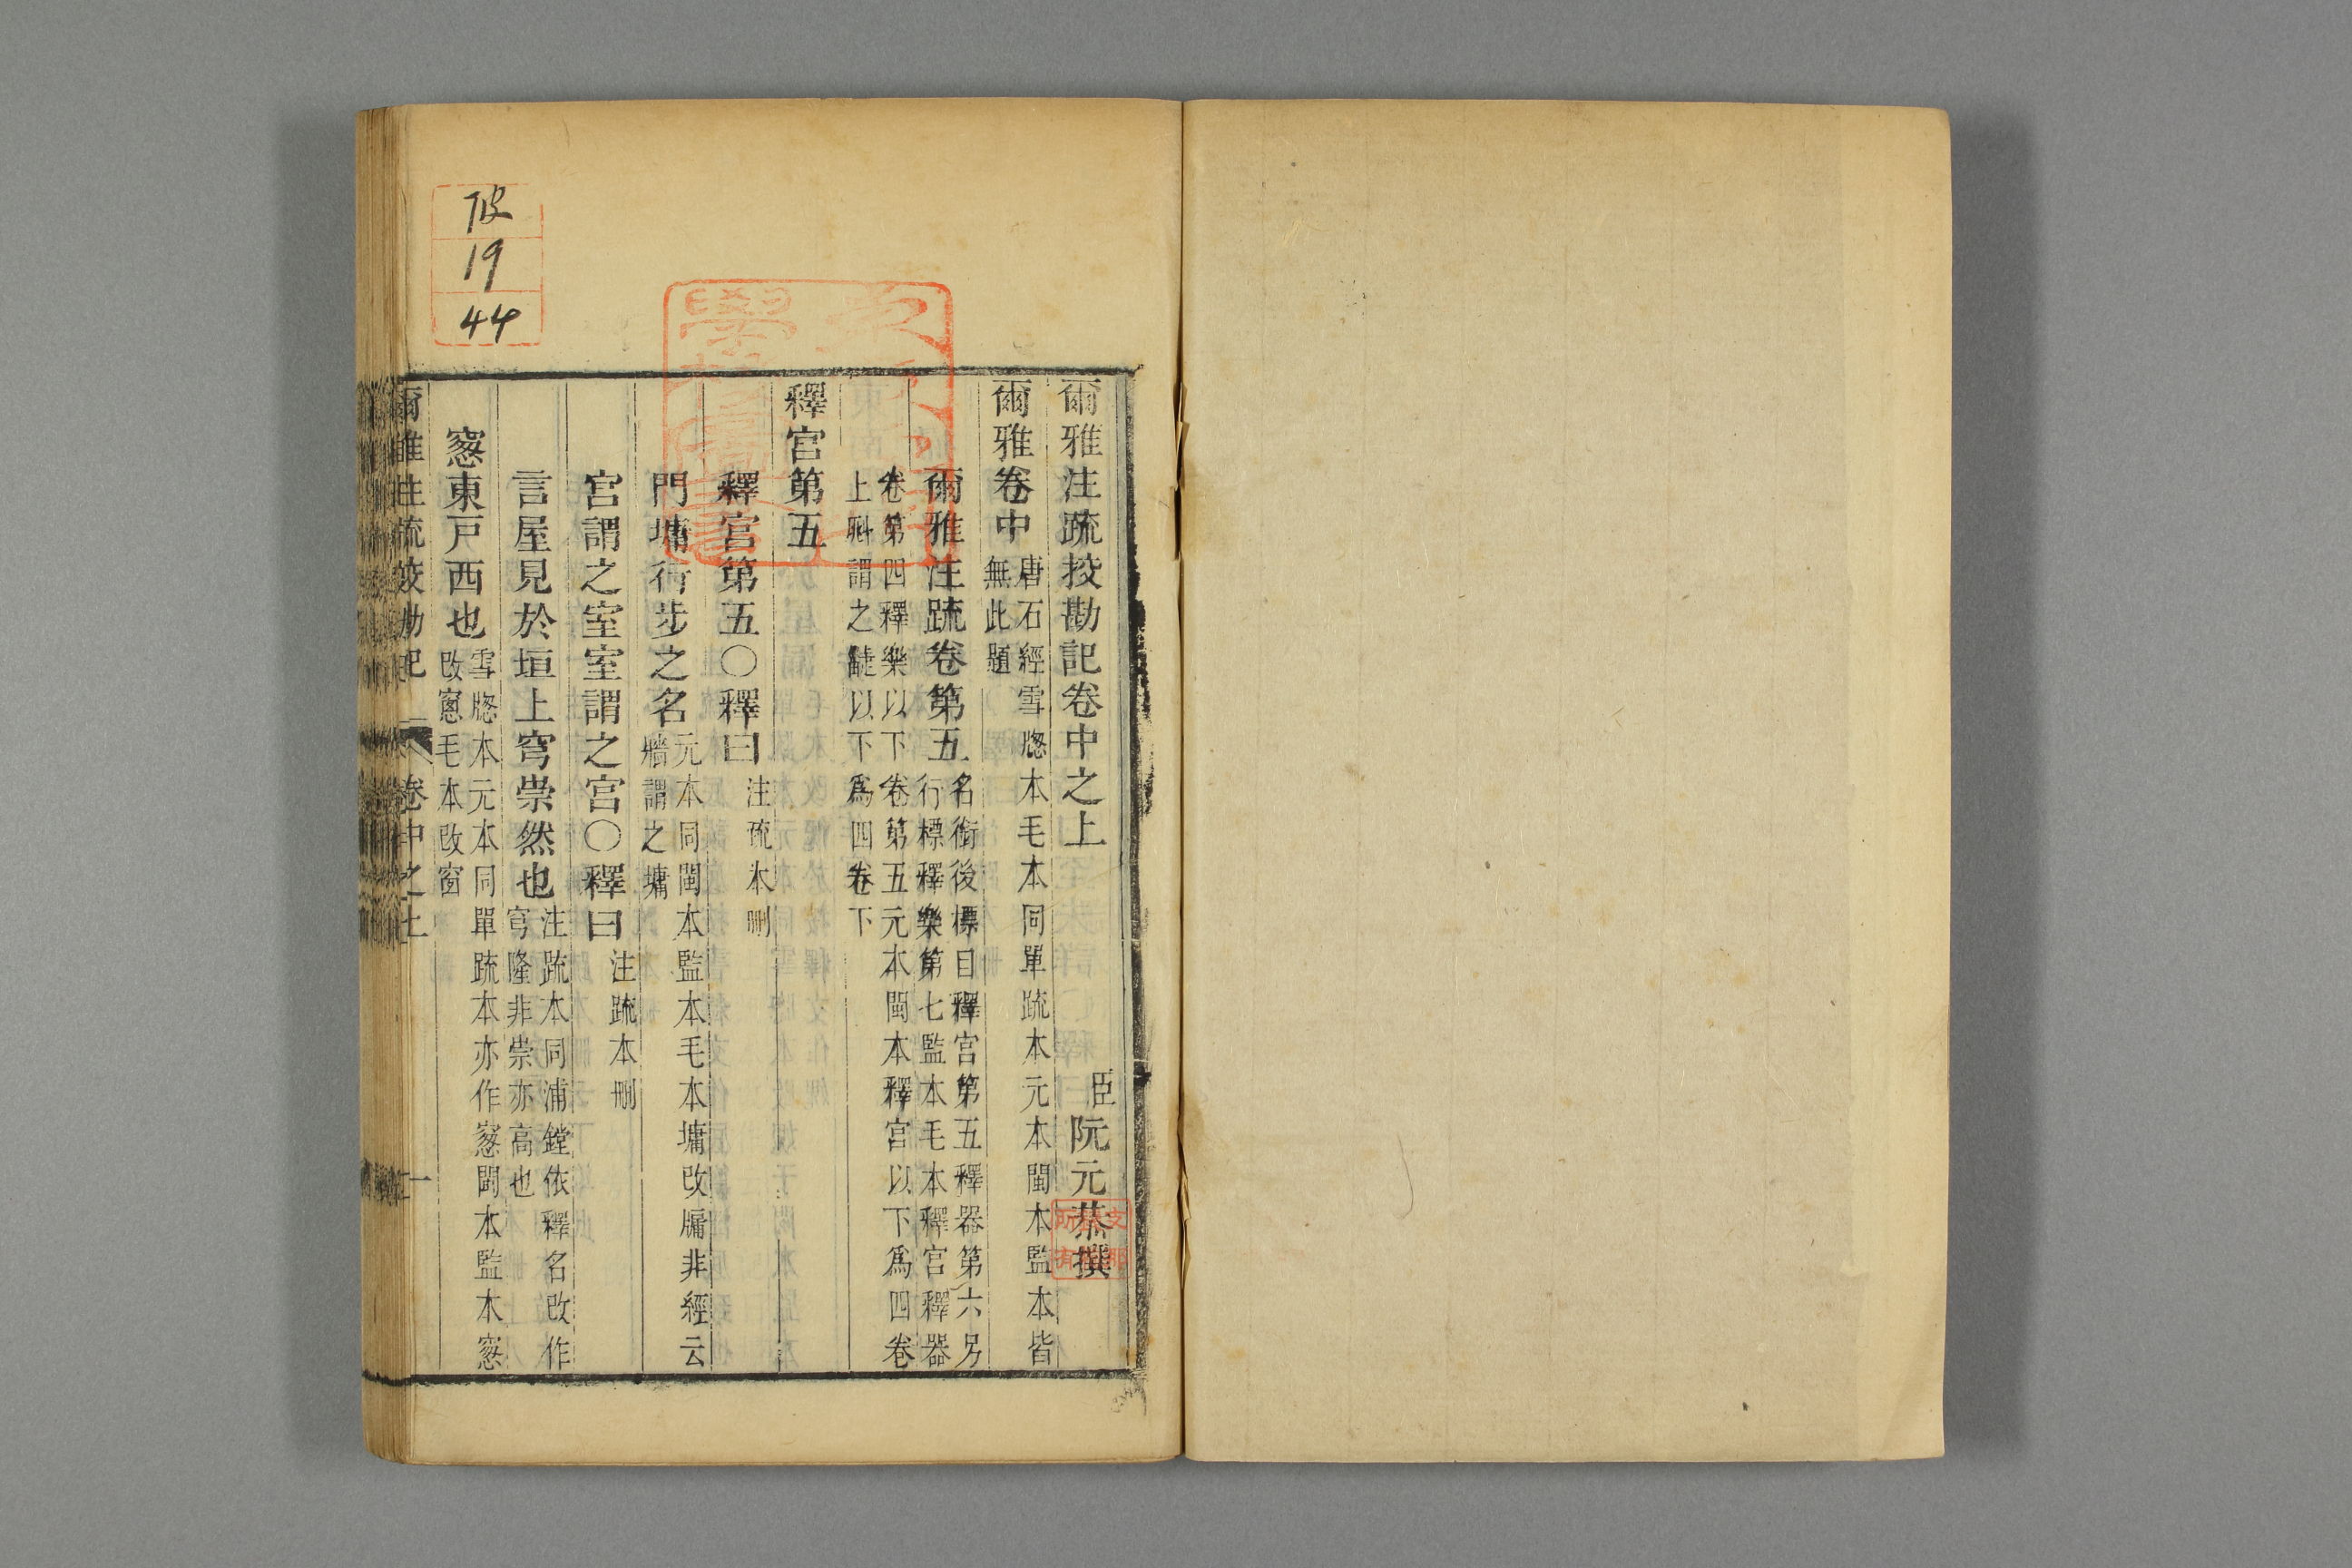 爾雅注疏挍勘記卷中之上
臣阮元恭撰
爾雅卷中
唐石經雪牕本毛本同單疏本元本閩本監本皆
無此題
爾雅注疏卷第五
名銜後標目釋宮第五釋器第六另
行標釋樂第七監本毛本釋宮釋器
卷第四釋樂以下卷第五元本閩本釋宮以下爲四卷
上
謂之
以下爲四卷下
釋宮第五
釋宮第五〇釋曰
注疏本刪
門墉行步之名
元本同閩本監本毛本墉改牗非經云
牆謂之墉
宮謂之室室謂之宮〇釋曰
注疏本刪
言屋見於垣上穹崇然也
注疏本同浦鏜依釋名改作
穹隆非崇亦高也
窓東戸西也
雪牕本元本同單疏本亦作窓閩本監本窓
改窻毛本改窗
爾雅注疏挍勘記
卷中之上
一
19
44